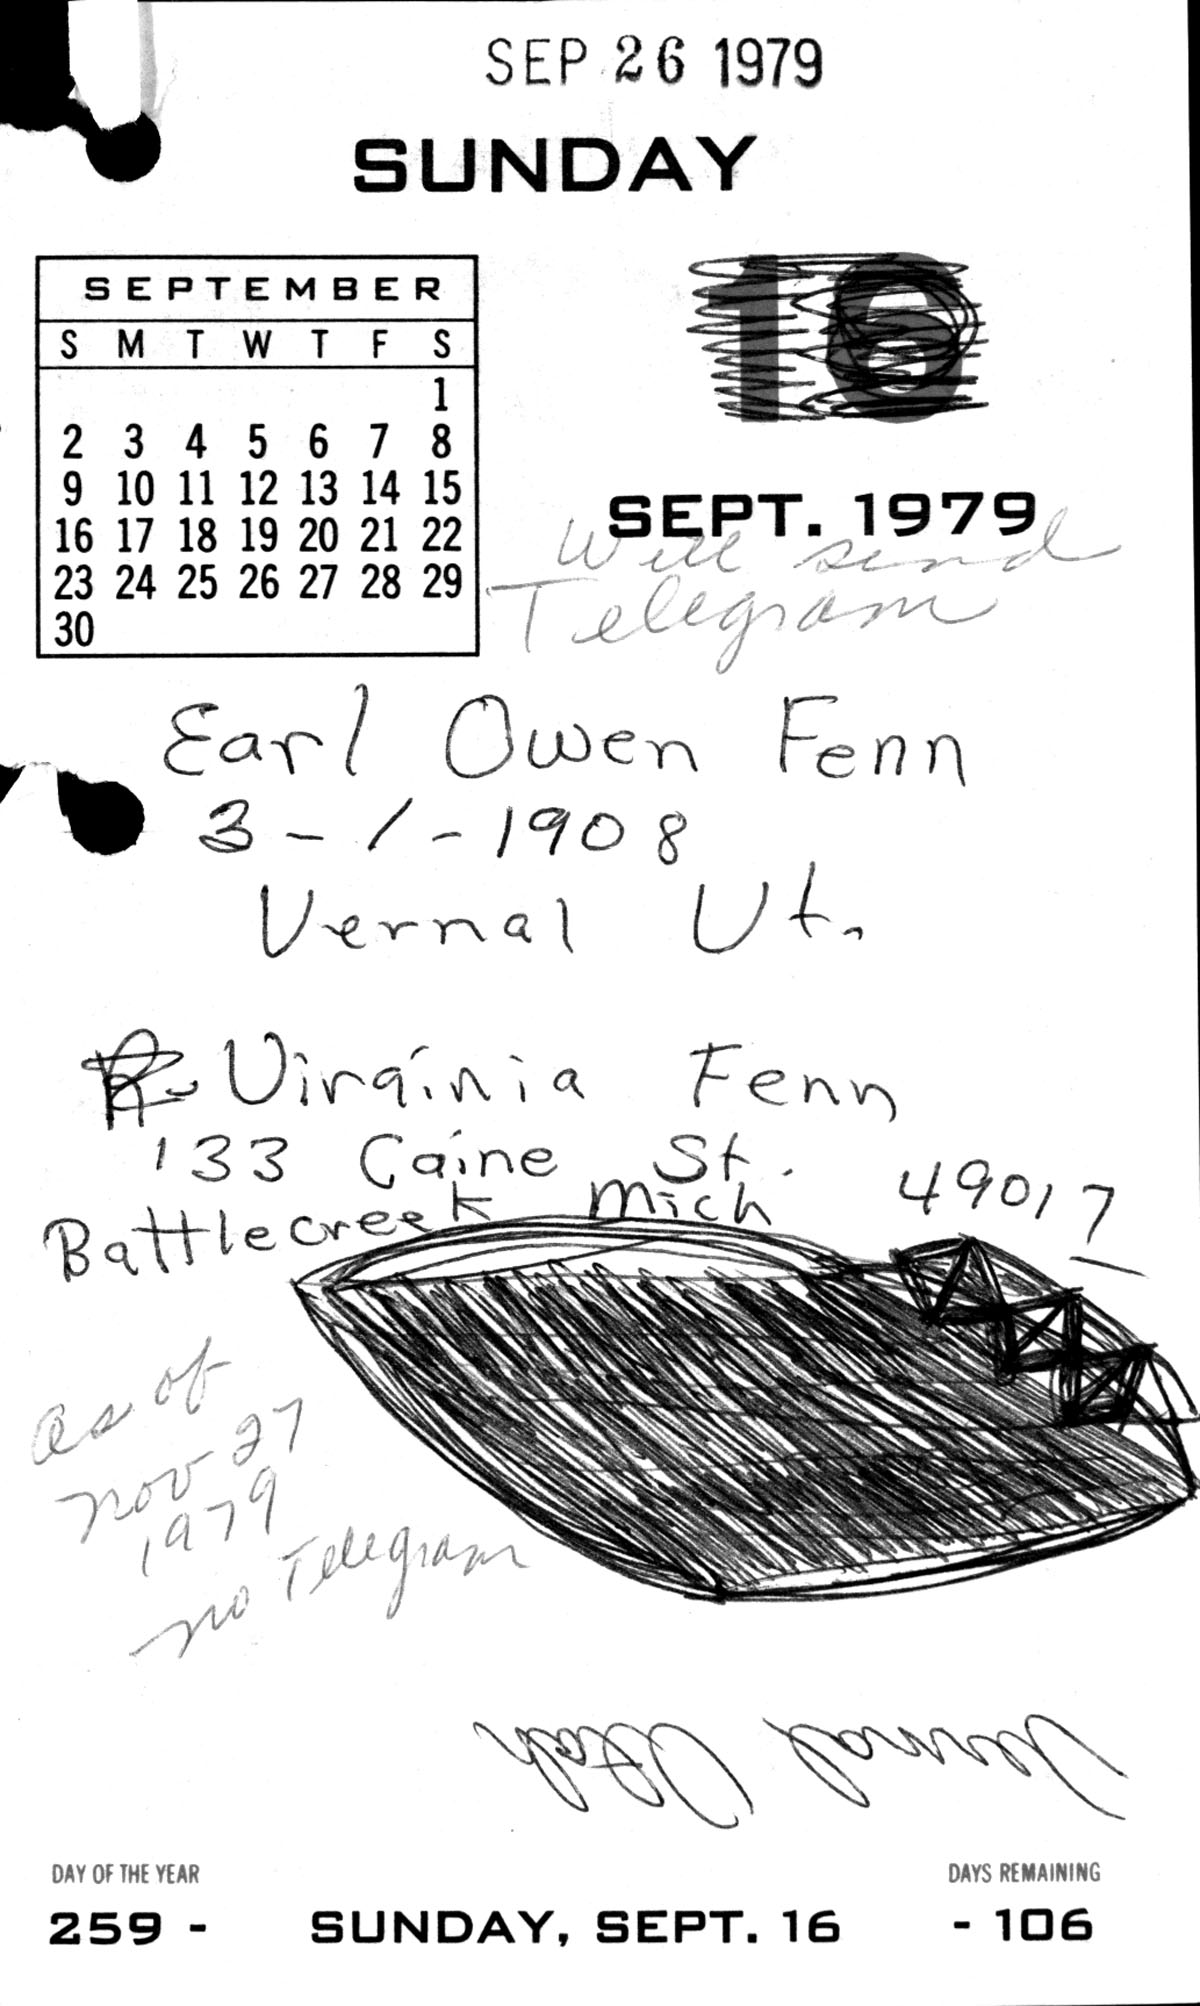 SEP 26 1979
SUNDAY
SEPTEMBER
S M T W T F S
1
2 3 4 5 6 7 8
9 10 11 12 13 14 15
16 17 18 19 20 21 22
23 24 25 26 27 28 29
30
16
SEPT. 1979
Will send
Telegram
Earl Owen Fenn
3-1-1908
Vernal Ut.
Virginia Fenn
133 Caine St.
Battlecreek Mich 49017
as of
Nov 27
1979
no Telegram
Vernal Utah
DAY OF THE YEAR DAYS REMAINING
259 - SUNDAY, SEPT. 16 - 106